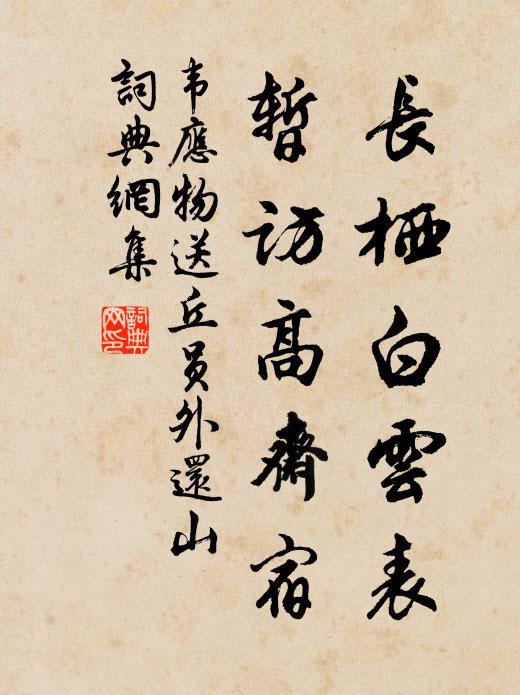 長栖白雲表
暫訪高齋宿
韦應物送丘员外還山
詞典網集
詞典网印